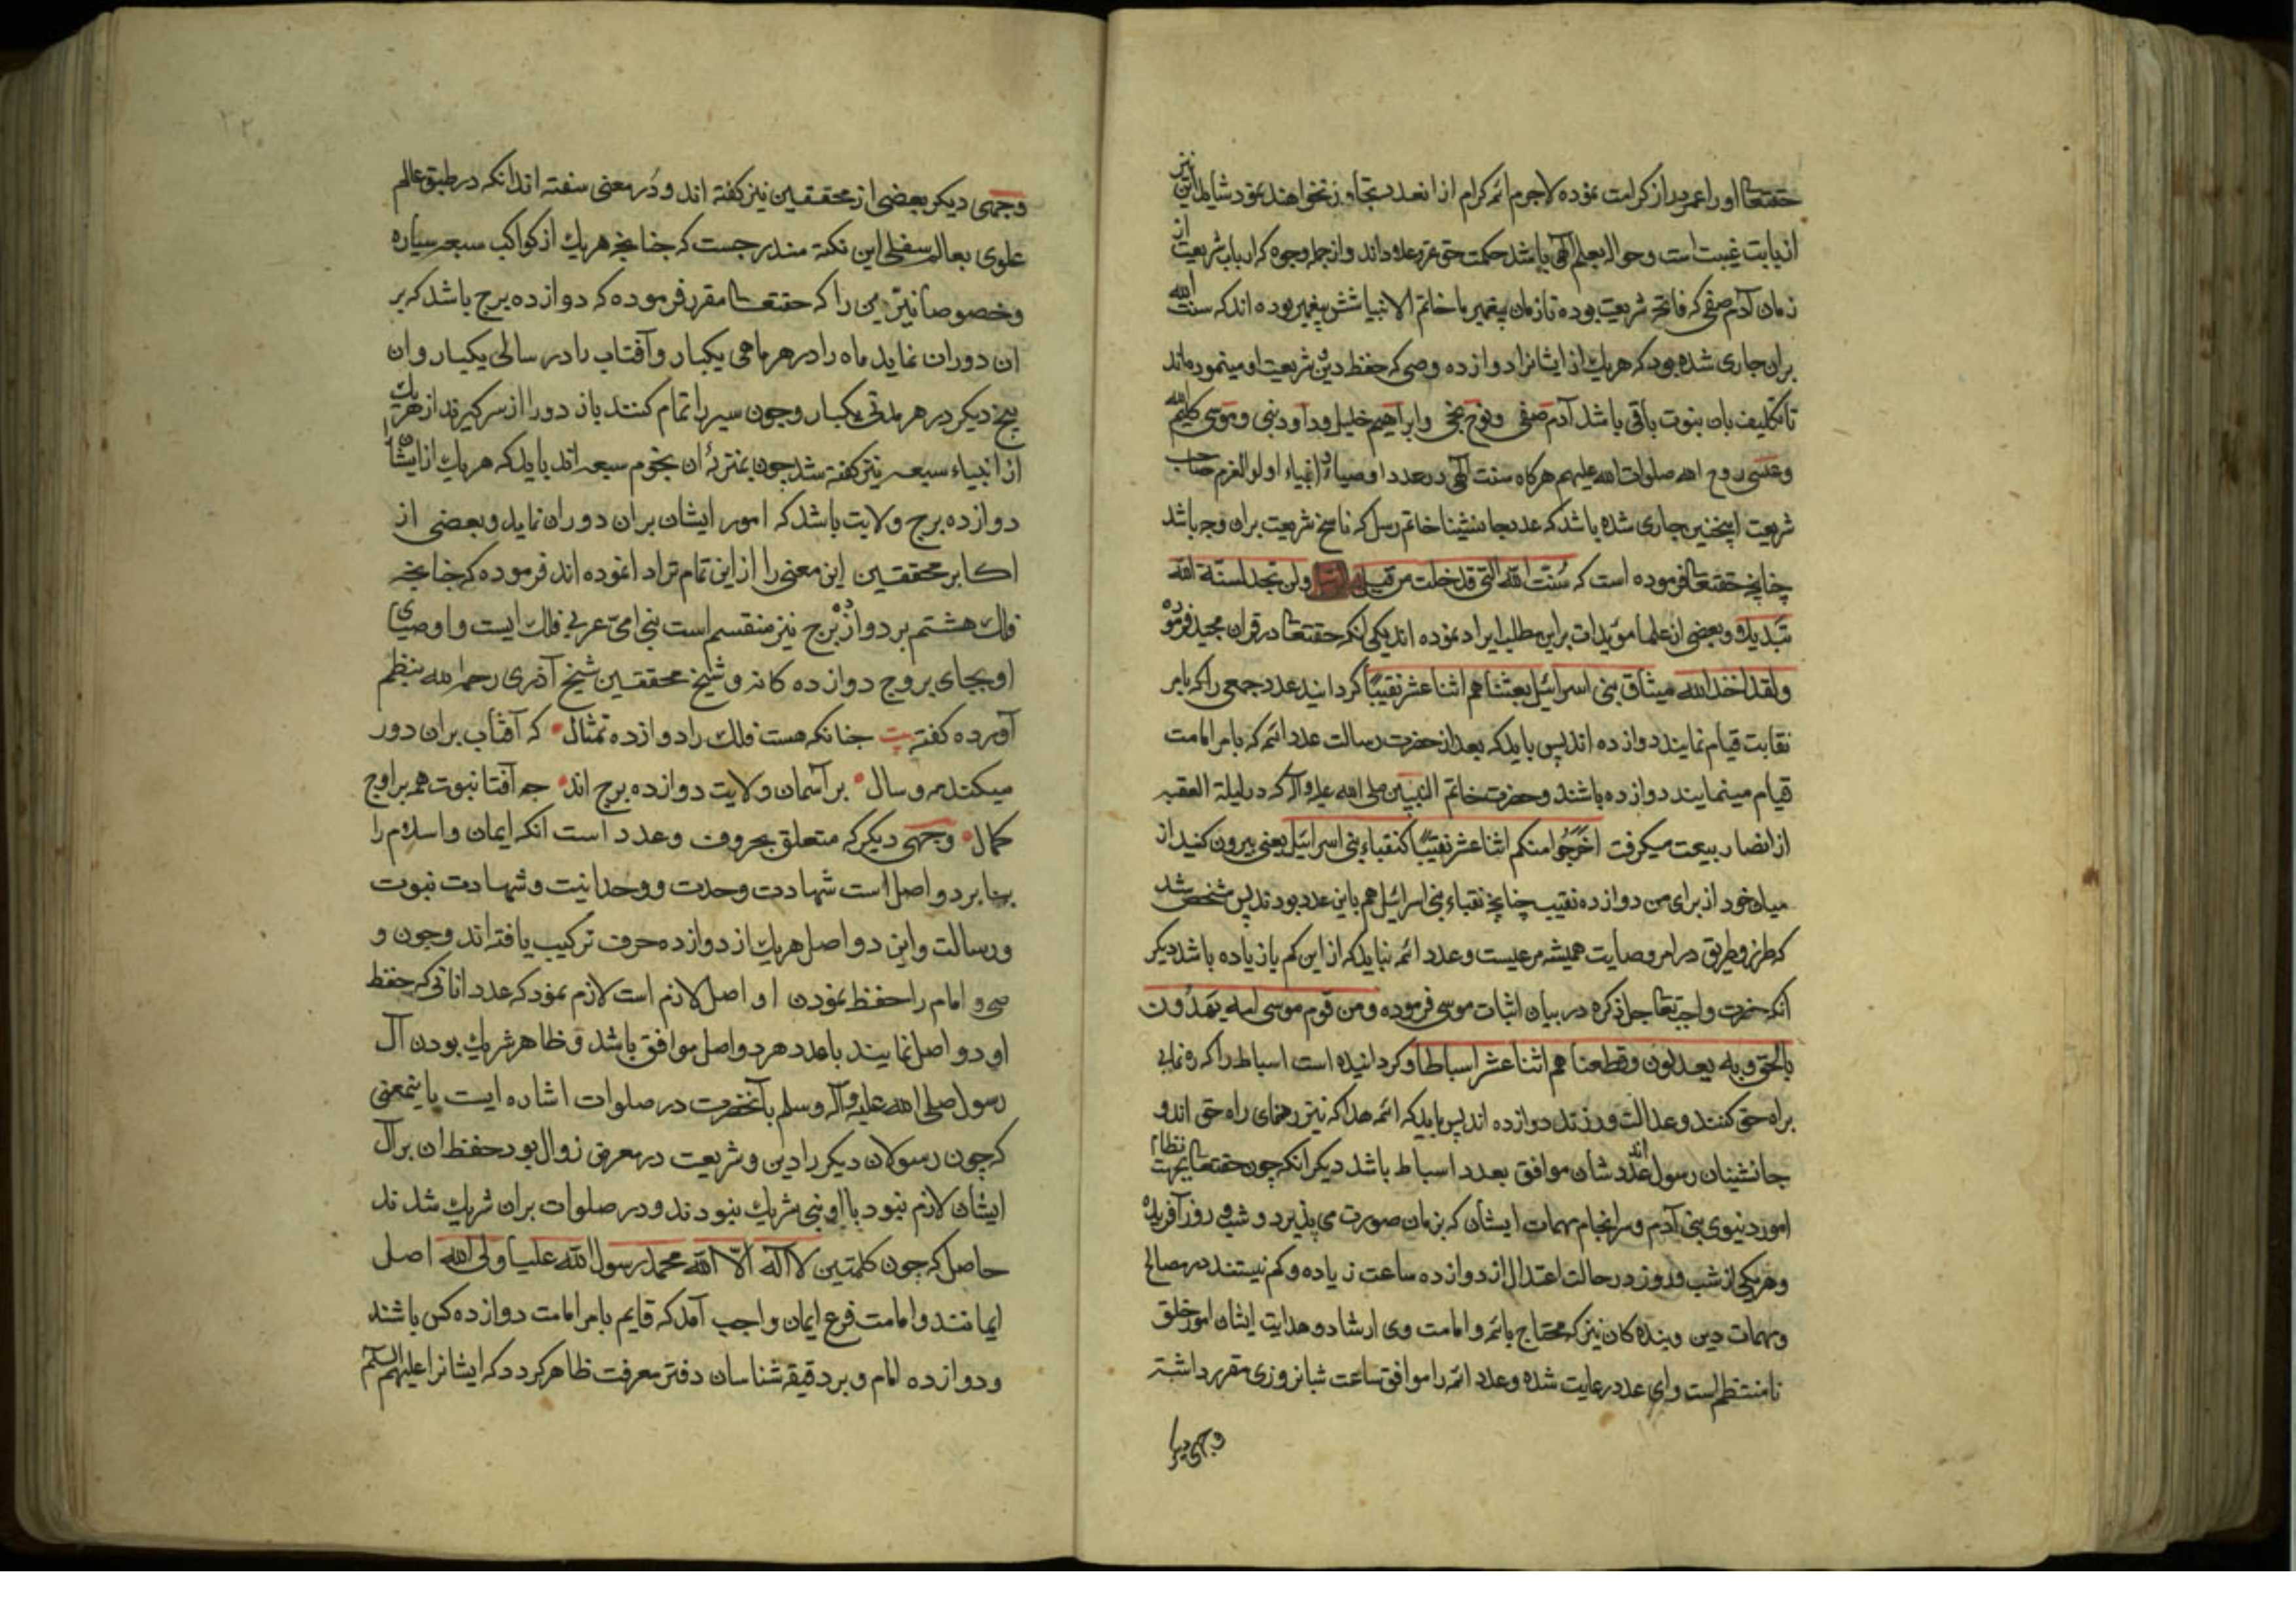 حقتعالی او را عمر دراز کرامت نموده لاجرم ائمه کرام از انعدد تجاوز نخواهند نمود شاید این نیز
از بابت غیبت است و حواله بعلم الهی باشد حکمت حق عز و علا داند و از جمله وجوه که ارباب شریعت از
زمان آدم صفی که فاتحه شریعت بوده تا زمان پیغمبر ما خاتم الانبیا شش پیغمبر بوده اند که سنت الله
بران جاری شده بود که هریك از ایشانرا دوازده وصی که حفظ دین شریعت او مینموده‌اند
تا تکلیف بان نبوت باقی باشد آدم صفی و نوح نجی و ابراهیم خلیل و داود نبی و موسی کلیم الله
و عیسی روح الله صلوات الله علیهم هرکاه سنت الهی در عدد اوصیاء انبیاء اولو العزم صاحب
شریعت اینچنین جاری شده باشد که عدد جانشینان خاتم رسل که ناسخ شریعت بران وجه باشد
چنانچه حقتعالی فرموده است که سُنّت الله التی قد خلت من قبل ولن تجد لسنة الله
تبدیلا و بعضی از علما مؤیدات براین مطلب ایراد نموده اند یکی انکه حقتعالی در قران مجید فرموده
ولقد اخذ الله میثاق بنی اسرائیل بعثنا هم اثنا عشر نقیبًا کردانیند عدد جمعی را که بامر
نقابت قیام نمایند دوازده اند پس باید که بعد از حضرت رسالت عدد ائمه که بامر امامت
قیام مینمایند دوازده باشند و حضرت خاتم النبیین صلی الله علیه و آله که در لیلة العقبه
از انصار بیعت میکرفت اخرجُوا منکم اثنا عشر نقیبًا کنقباء بنی اسرائیل یعنی بیرون کنید از
میان خود از برای من دوازده نقیب چنانچه نقباء بنی اسرائیل هم باین عدد بودند پس مشخص شد
که طرز و طریق در امر وصایت همیشه مرعیست و عدد ائمه نباید که از این کم یا زیاده باشد دیکر
انکه حضرت واجب تعالی جل ذکره در بیان اثبات موسی فرموده ومن قوم موسی امه یهدُون
بالحق وبه یعدلون وقطعنا هم اثنا عشر اسباطا و کردانیده است اسباط را که ره نمایی
براه حق کنند و عدالت ورزند دوازده اند پس باید که ائمه هدا که نیز رهنمای راه حق اند و
جانشینان رسول اند عدد شان موافق بعدد اسباط باشد دیکر انکه چون حقتعالی بجهت نظام
امور دنیوی بنی آدم و سرانجام مهمات ایشان که بزمان صورت می پذیرد و شب و روز آفریده
و هر یکی از شب و روز در حالت اعتدال از دوازده ساعت زیاده و کم نیستند در مصالح
و مهمات دین و بنده کان نیز که محتاج بائمه و امامت وی ارشاد و هدایت ایشان امور خلق
نا منتظم است و ای عدد رعایت شده و عدد ائمه را موافق ساعت شبانروزی مقرر داشته
وجهی دیکر
وجهی دیکر بعضی از محققین نیز کفته اند و دُر معنی سفته اند انکه در طبق عالم
علوی بعالم سفلی این نکته مندرجست که چنانچه هریك از کواکب سبعه سیاره
و خصوصا نیرین را که حقتعالی مقرر فرموده که دوازده برج باشد که بر
ان دوران نماید ماه را در هر ماهی یکبار و آفتاب را در سالی یکبار و ان
پنج دیکر در هر مدتی یکبار و چون سیر را تمام کنند باز دور را از سر کیرند از هر یك
از انبیاء سبعه نیز کفته شد چون بمنزلهٔ ان نجوم سبعه اند باید که هریك از ایشان را
دوازده برج ولایت باشد که امور ایشان بران دوران نماید و بعضی از
اکابر محققین این معنی را از این تمام تر ادا نموده اند فرموده که چنانچه
فلك هشتم بر دوازده برج نیز منقسم است نبی امی عربی فلك ایست و اوصیای
او بجای بروج دوازده کانه و شیخ محققین شیخ آذری رحمه الله بنظم
آورده کفته بیت جنانکه هست فلك را دوازده تمثال • که آفتاب بران دور
میکند مه و سال • بر آسمان ولایت دوازده برج اند • جه آفتا نبوت همه براوج
کمال • وجهی دیکر که متعلق بحروف و عدد است انکه ایمان و اسلام را
بنا بر دو اصل است شهادت وحدت و وحدانیت و شهادت نبوت
و رسالت و این دو اصل هریك از دوازده حرف ترکیب یافته اند و چون و
صی و امام را حفظ نمودن او اصل لازم است لازم نمود که عدد اناتی که حفظ
او دو اصل نمایند با عدد هر دو اصل موافق باشد و ظاهر شریك بودن آل
رسول صلی الله علیه وآله وسلم بآنحضرت در صلوات اشاره ایست باینمعنی
که چون رسولان دیکر را دین و شریعت در معرض زوال بود حفظ ان برآل
ایشان لازم نبود با او نبی شریك نبودند و در صلوات بران شریك شدند
حاصل که چون کلمتین لا اله الا الله محمد رسول الله علیا ولی الله اصل
ایمانند و امامت فرع ایمان واجب آمد که قایم بامر امامت دوازده کس باشند
و دوازده امام و بر دقیقه شناسان دفتر معرفت ظاهر کردد که ایشانرا علیهم السلم